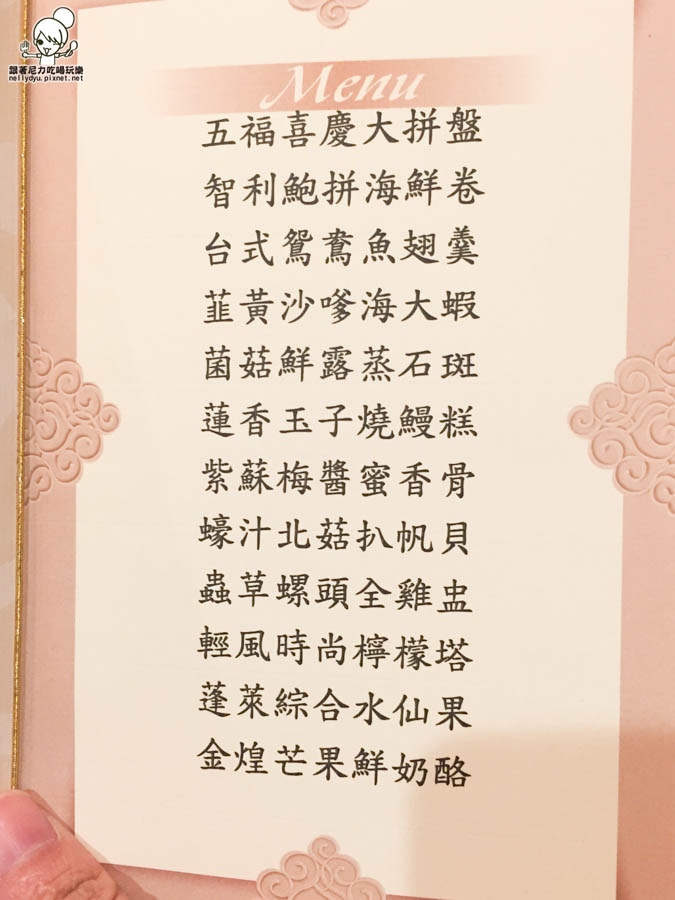 跟著尼力吃喝玩樂
nellydyu.pixnet.net
Menu
五福喜慶大拼盤
智利鮑拼海鮮卷
台式鴛鴦魚翅羹
韮黃沙嗲海大蝦
菌菇鮮露蒸石斑
蓮香玉子燒鰻糕
紫蘇梅醬蜜香骨
蠔汁北菇扒帆貝
蟲草螺頭全雞盅
輕風時尚檸檬塔
蓬萊綜合水仙果
金煌芒果鮮奶酪